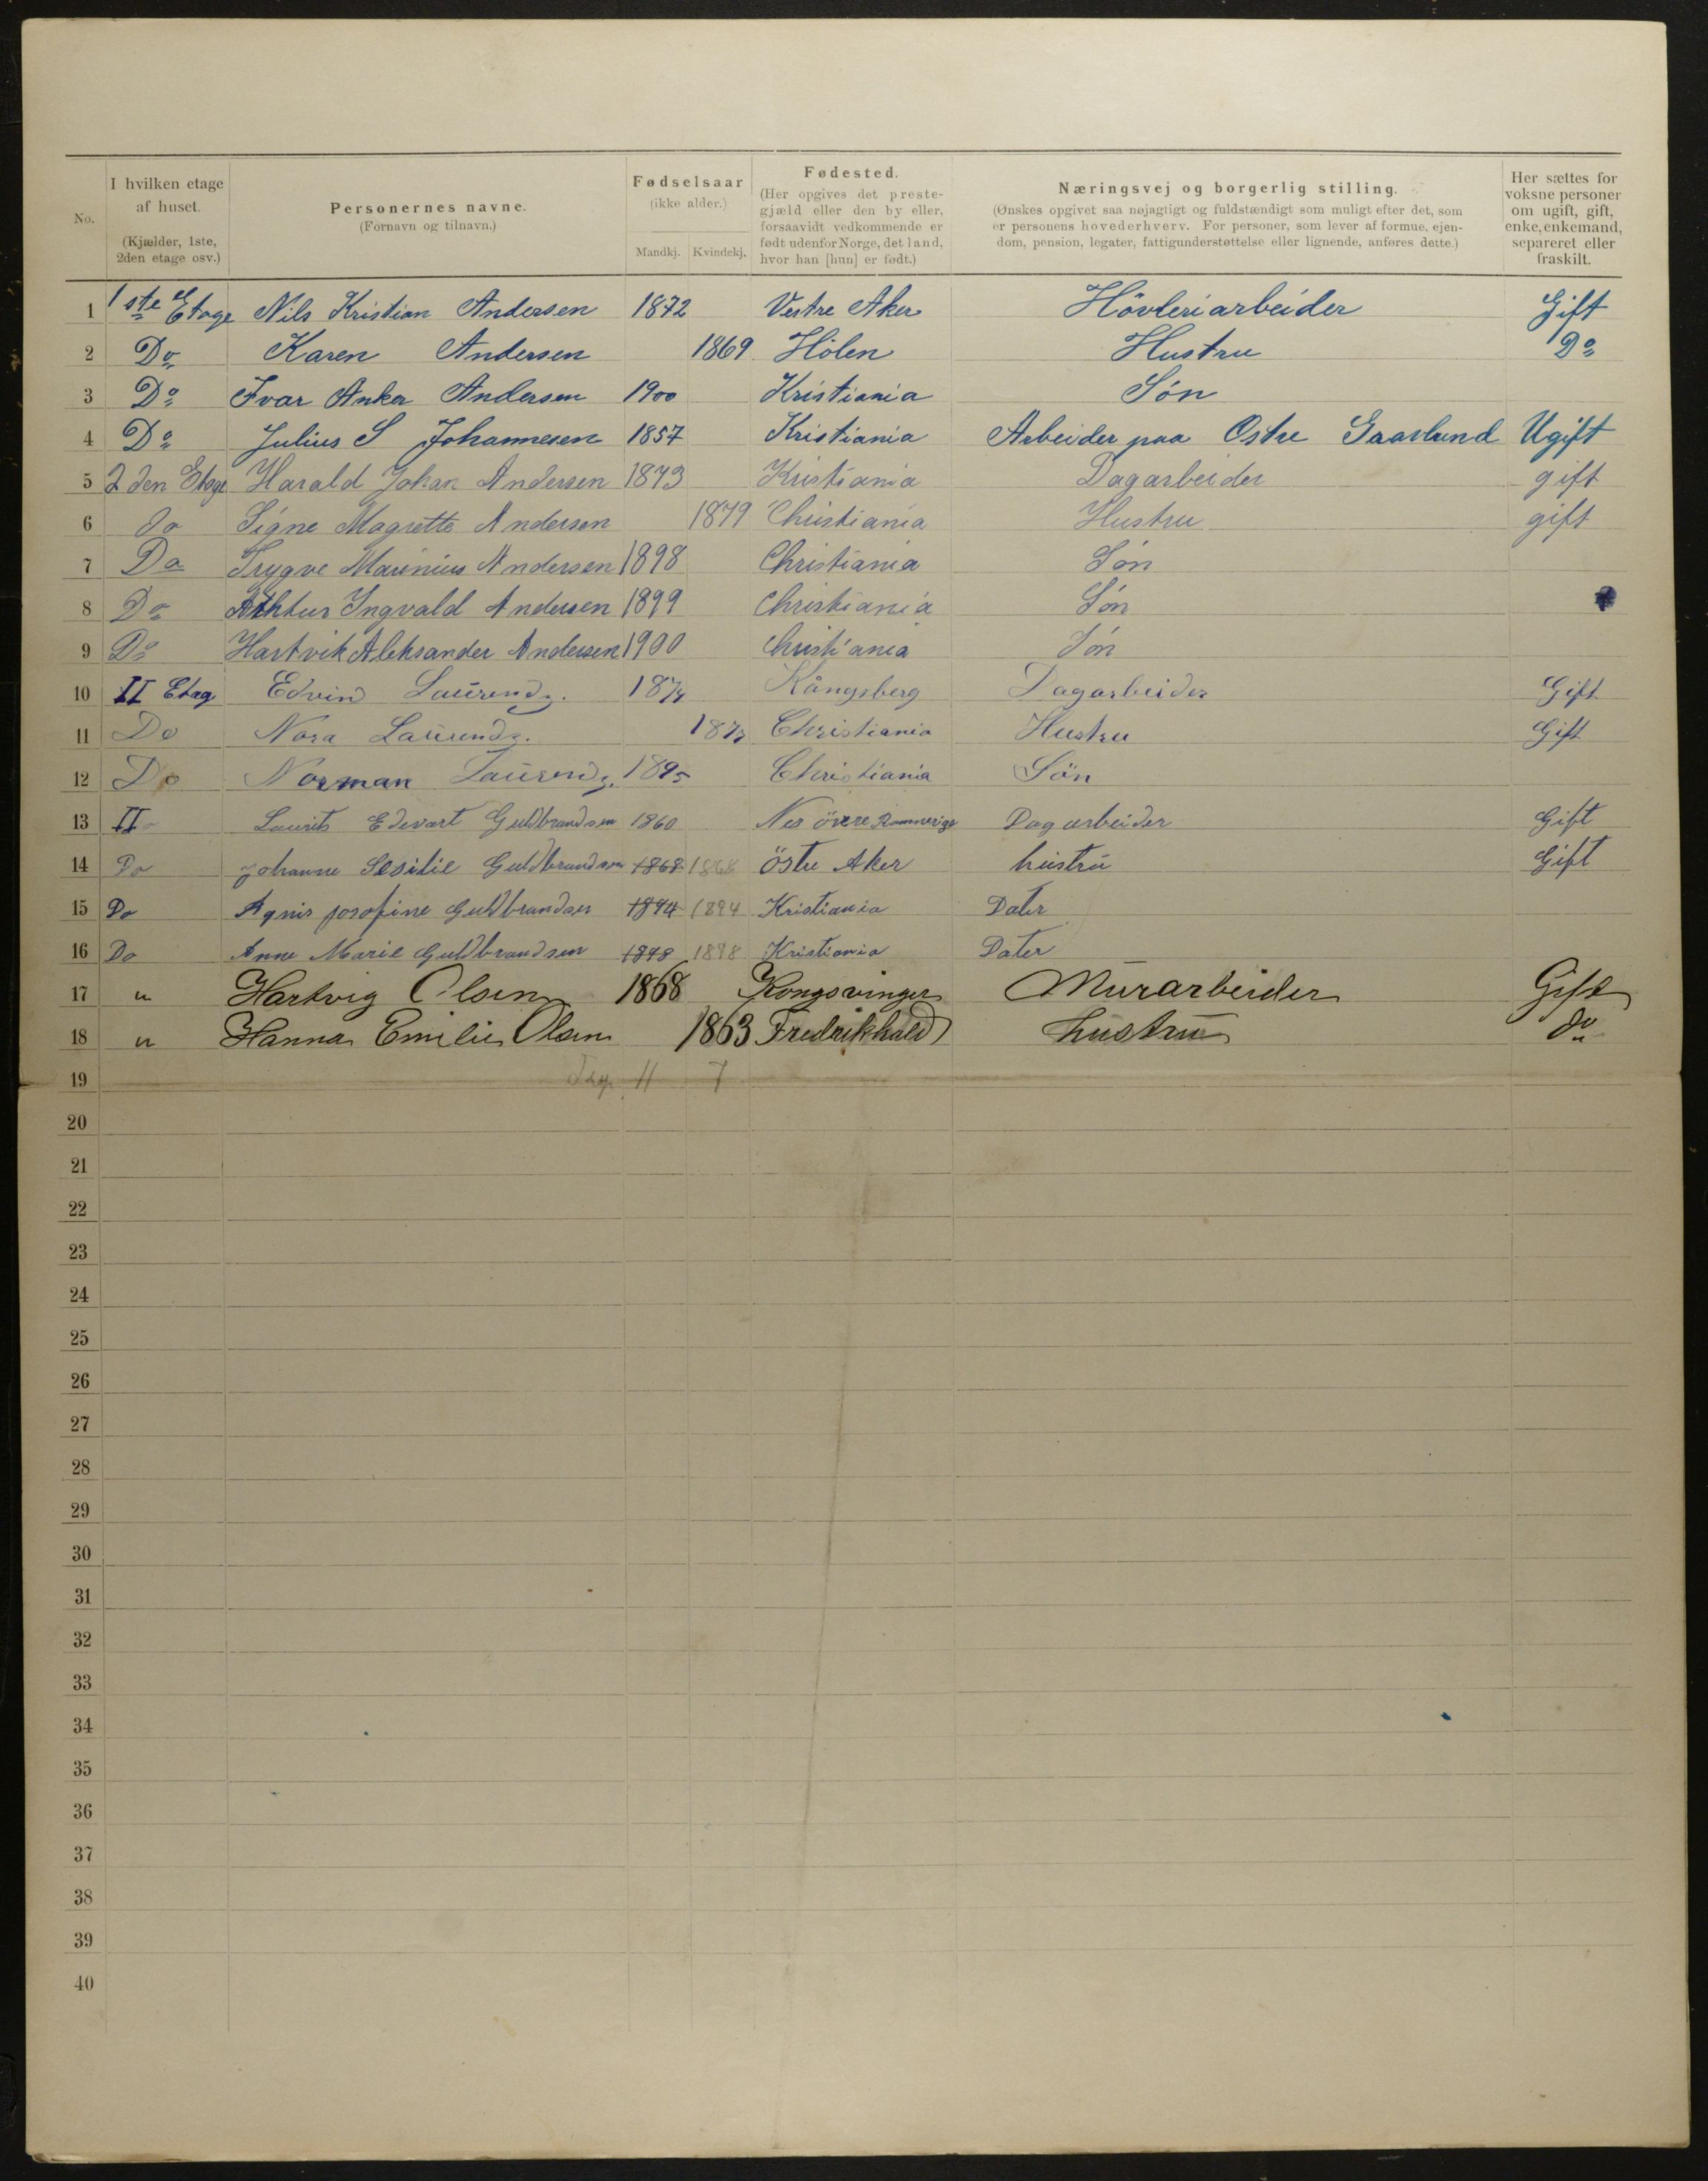 No.
I hvilken etage af huset. (Kjælder, 1ste, 2den etage osv.)
Personernes navne. (Fornavn og tilnavn.)
Fødselsaar (ikke alder.) Mandkj. Kvindekj.
Fødested. (Her opgives det prestegjæld eller den by eller, forsaavidt vedkommende er født udenfor Norge, det land, hvor han [hun] er født.)
Næringsvej og borgerlig stilling. (Ønskes opgivet saa nøjagtigt og fuldstændigt som muligt efter det, som er personens hovederhverv. For personer, som lever af formue, ejendom, pension, legater, fattigunderstøttelse eller lignende, anføres dette.)
Her sættes for voksne personer om ugift, gift, enke, enkemand, separeret eller fraskilt.
1 1ste Etage Nils Kristian Andersen 1872 Vestre Aker Hövleriarbeider Gift
2 Do Karen Andersen 1869 Hölen Hustru Do
3 Do Ivar Anker Andersen 1900 Kristiania Són
4 Do Julius S Johannesen 1857 Kristiania Arbeider paa Ostre Gaarlund Ugift
5 2den Etage Harald Johan Andersen 1873 Kristiania Dagarbeider gift
6 do Signe Magrette Andersen 1879 Christiania Hustru gift
7 Do Trygve Marinius Andersen 1898 Christiania Són
8 Do Athtur Ingvald Andersen 1899 Christiania Són
9 Do Hartvik Aleksander Andersen 1900 Christiania Són
10 II Etag Edvin Laurendz. Kångsberg Dagarbeider Gift
11 Do Nora Laurendz. Christiania Hustru Gift
12 Do Norman Laurendz. 1895 Christiania Sön
13 II Laurits Edevart Guldbrandsen 1860 Nes övere Rommerige Dagarbeider Gift
14 Do Johanne Sesilie Guldbrandsen 1868 1868 Östre Aker hustru Gift
15 Do Agnis josofine Guldbrandsen 1894 1894 Kristiania Dater
16 Do Anne Marie Guldbrandsen 1898 1898 Kristiania Dater
17 " Hartvig Olsen 1868 Kongsvinger Murarbeider Gift
18 " Hanna Emilie Olsen 1863 Fredrikhald hustru do
19 11 7
20
21
22
23
24
25
26
27
28
29
30
31
32
33
34
35
36
37
38
39
40